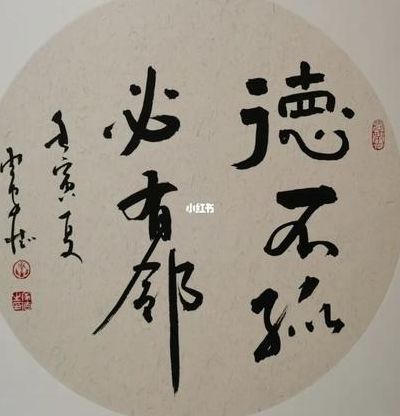 德不孤
必有邻
壬寅夏
小红书